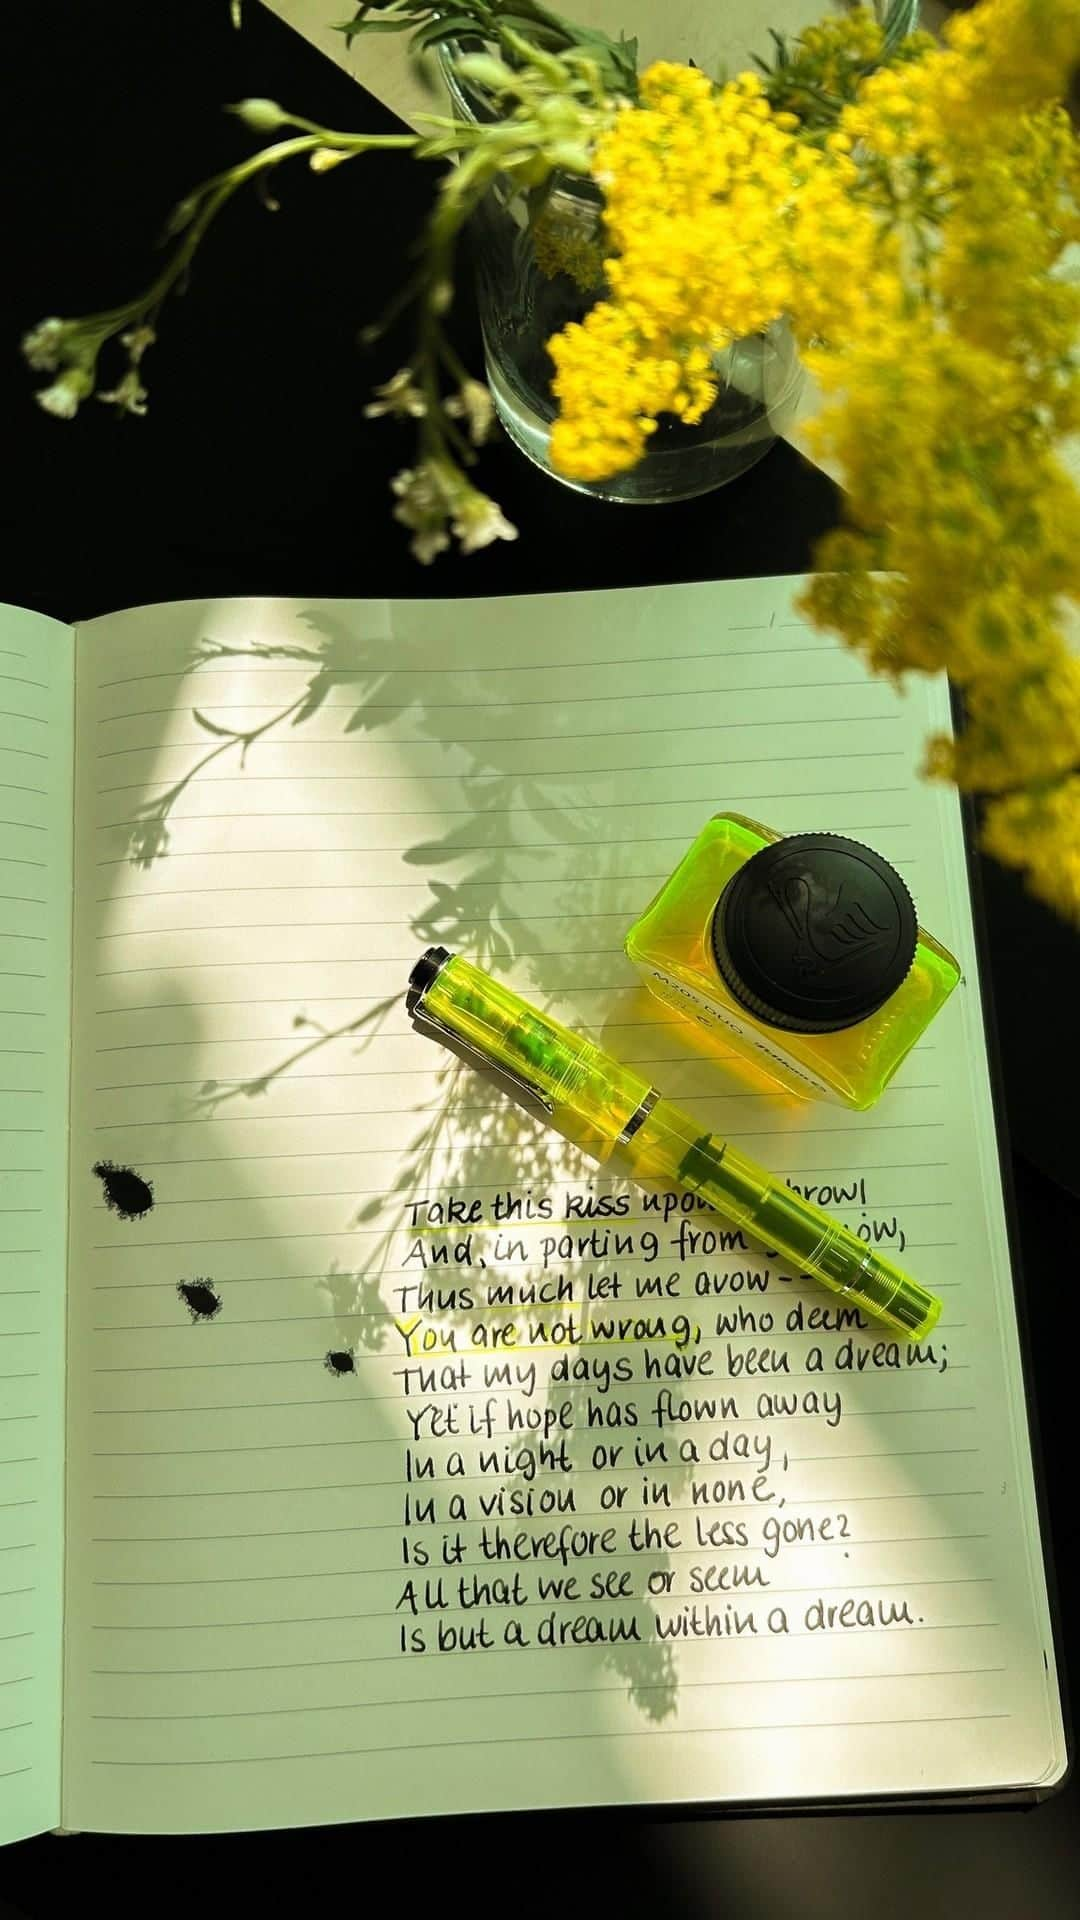 M205 DUO
Pelikan
Take this kiss upon brow!
And, in parting from now,
Thus much let me avow --
You are not wrong, who deem
That my days have been a dream;
Yet if hope has flown away
In a night or in a day,
In a vision or in none,
Is it therefore the less gone?
All that we see or seem
Is but a dream within a dream.